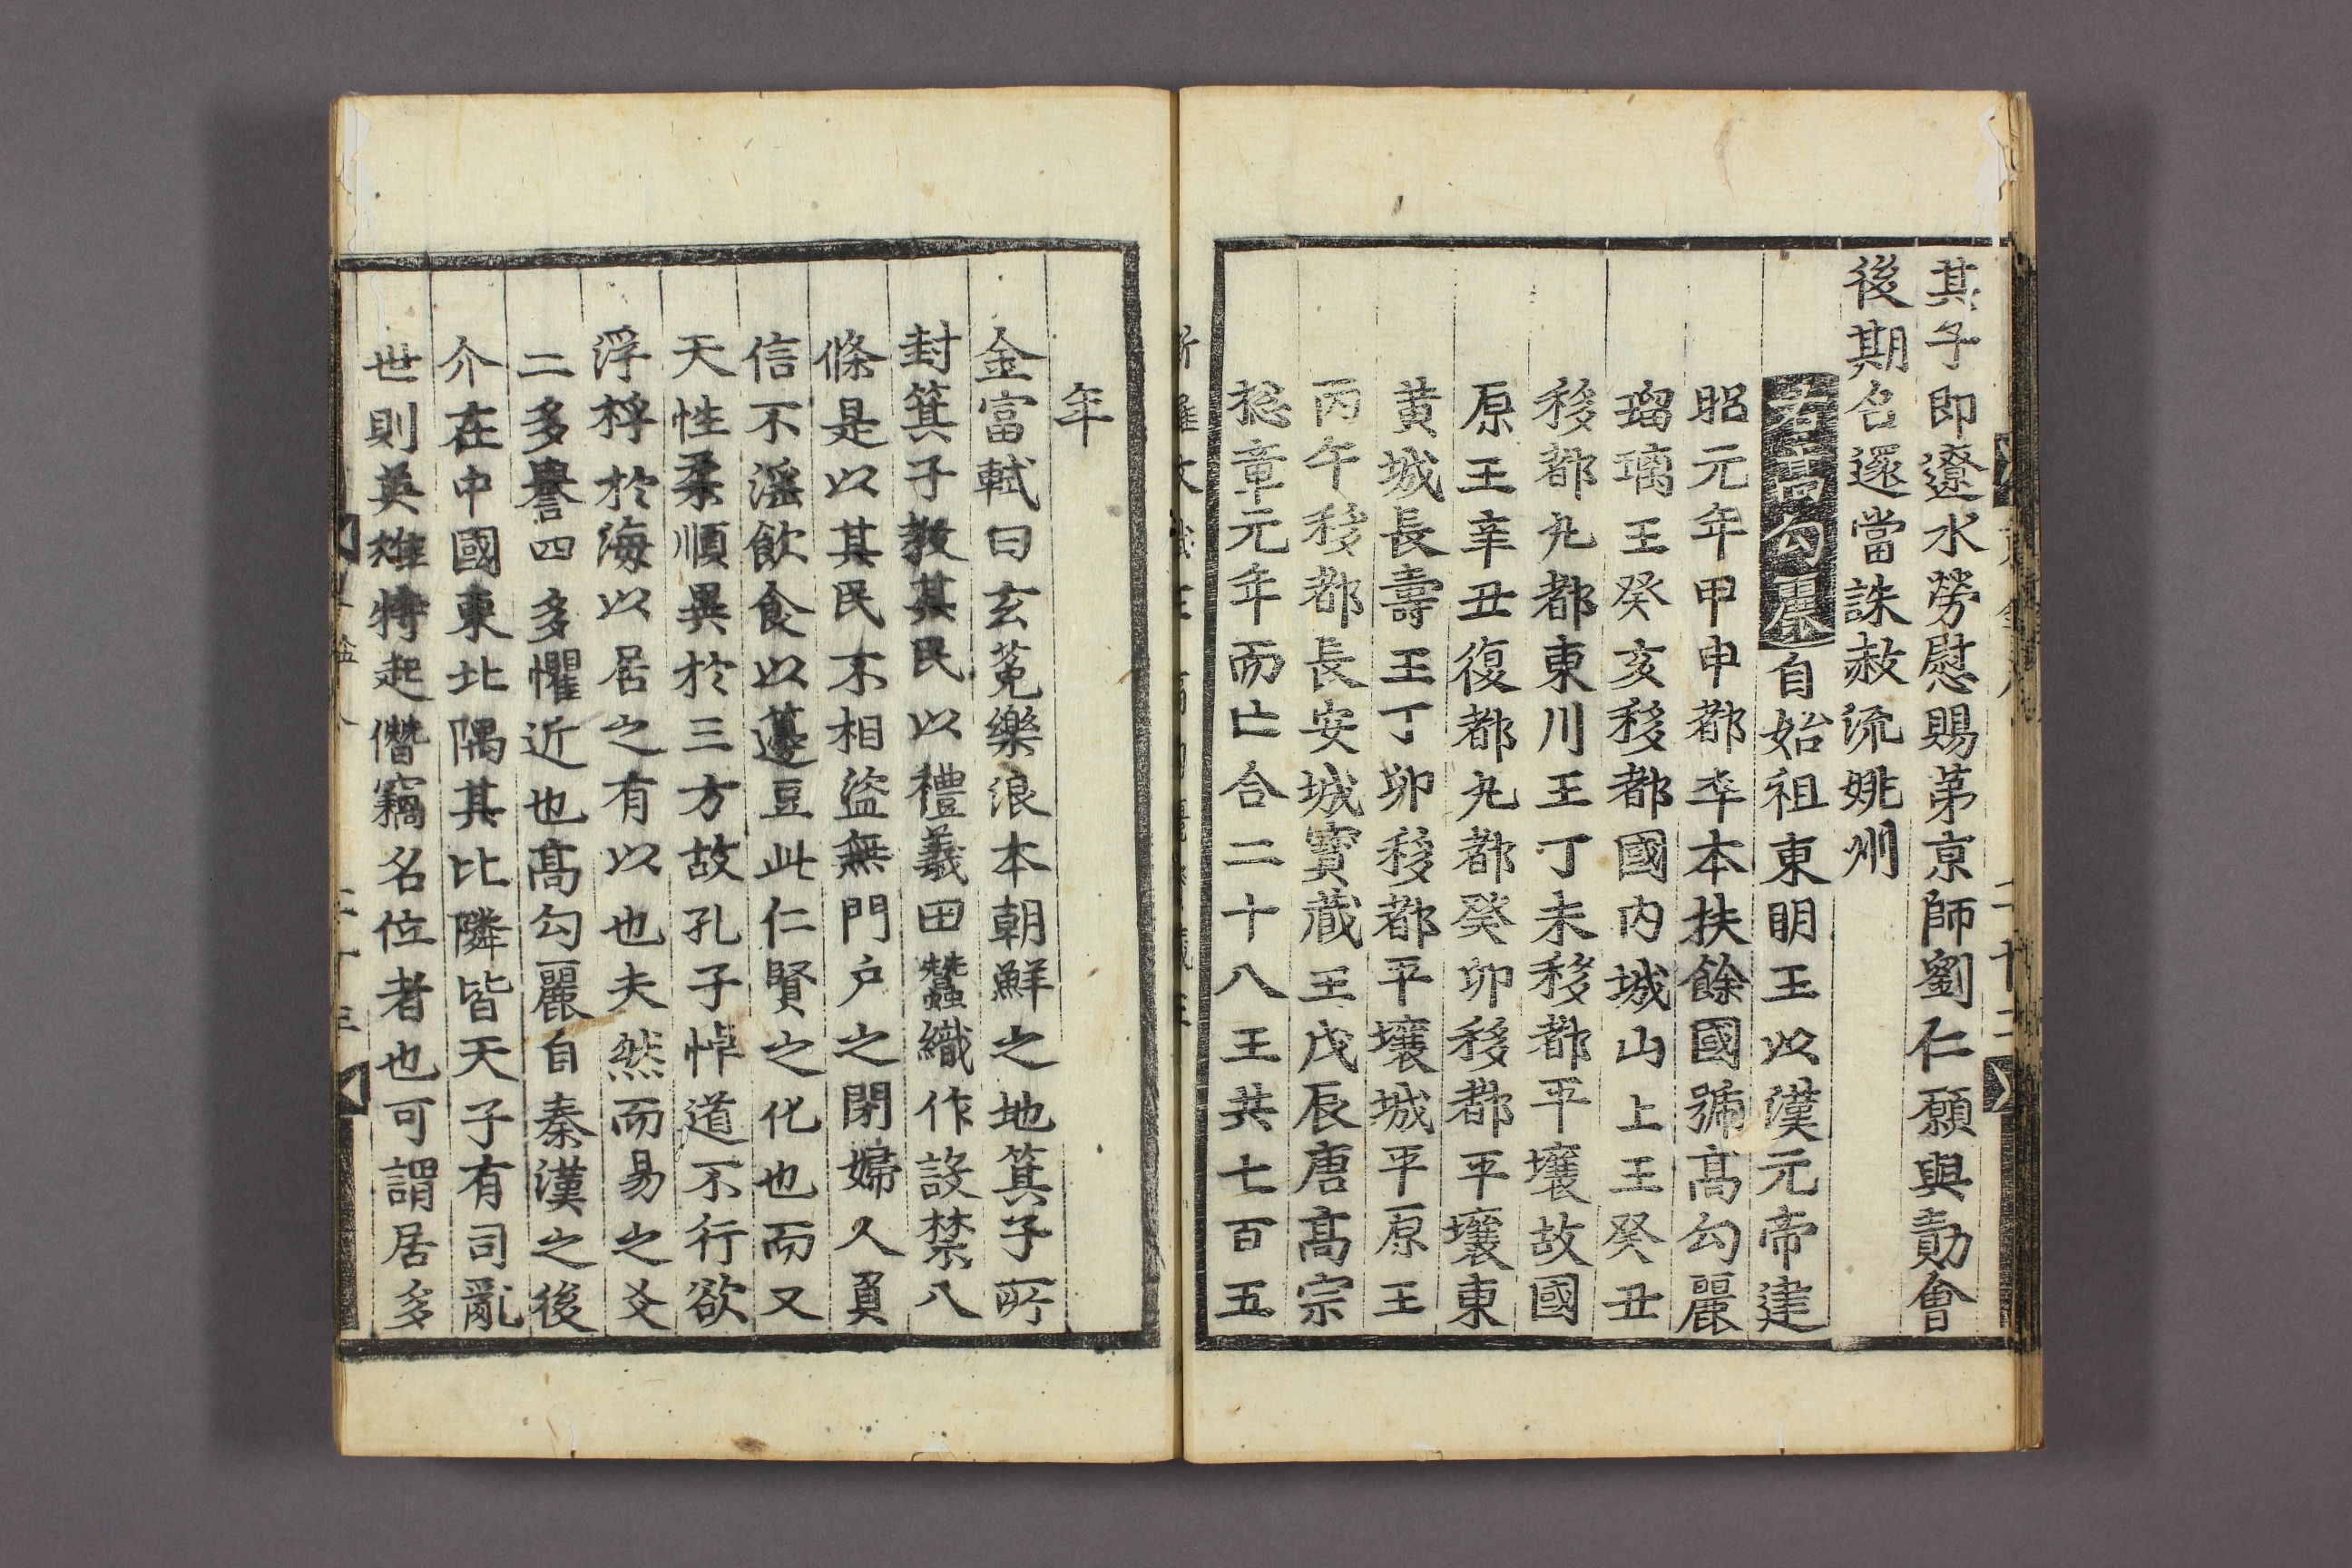 其子即遼水勞慰賜第京師劉仁願與勣會
後期召還當誅赦流姚州
右高勾麗自始祖東明王以漢元帝建
昭元年甲申都卒本扶餘國號高勾麗
瑠璃王癸亥移都國内城山上王癸丑
移都丸都東川王丁未移都平壤故國
原王辛丑復都丸都癸卯移都平壤東
黄城長壽王丁卯移都平壤城平原王
丙午移都長安城寶蔵王戊辰唐髙宗
揔章元年而亡合二十八王共七百五
年
金富軾曰玄菟樂浪本朝鮮之地箕子所
封箕子教其民以禮義田蠶織作設禁八
條是以其民不相盜無門户之閉婦人貞
信不滛飲食以籩豆此仁賢之化也而又
天性柔順異於三方故孔子悼道不行欲
浮桴於海以居之有以也夫然而易之爻
二多譽四多懼近也髙勾麗自秦漢之後
介在中國東北隅其比隣皆天子有司亂
世則英雄特起僭竊名位者也可謂居多